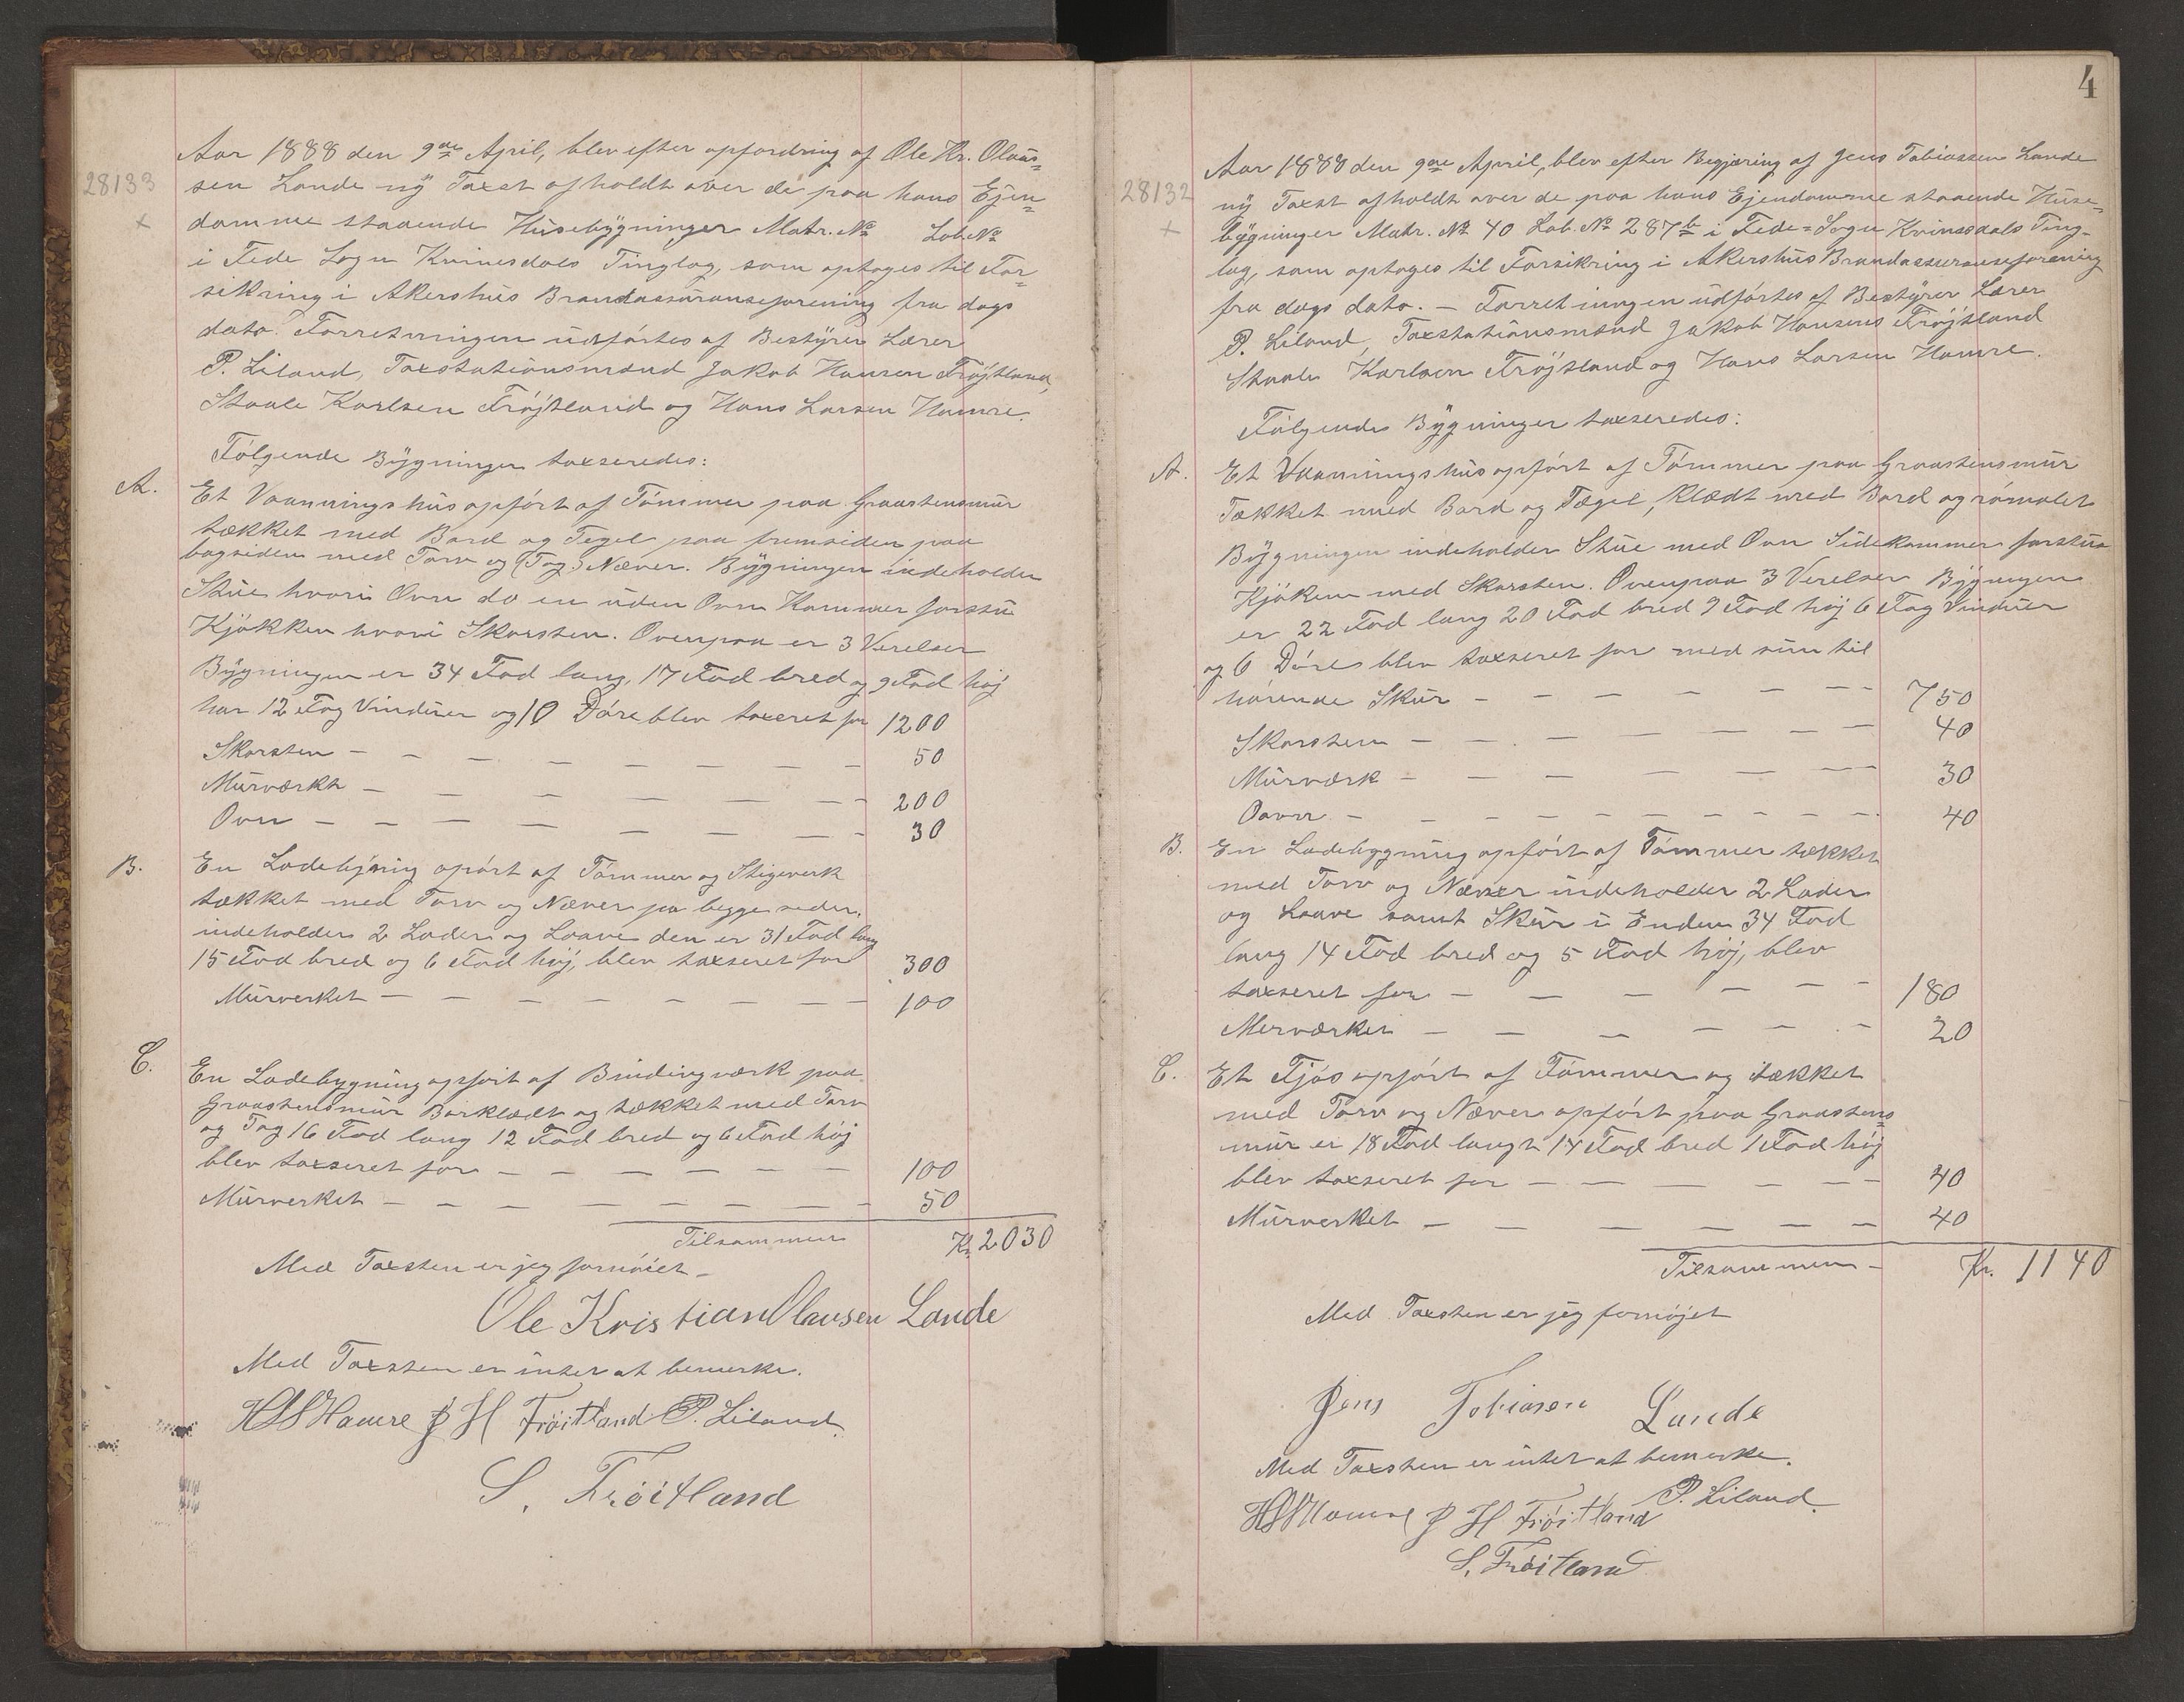 Aar 1888 den 9de April, blev efter opfordring af Ole Kr. Olaus=
28133
sen Lande ny Taxst afholdt over de paa hans Ejen=
+
domme staaende Husebygninger Matr. No Løb. No
i Fede Sogn Kvinesdals Tinglag, som optages til For=
sikring i Akershus Brandassuranseforening fra dags
dato. Forretningen udførtes af Bestyrer Lærer
P. Liland, Taxstationsmænd Jakob Hansen Frøjtland,
Staale Karlsen Frøjtland og Hans Larsen Hamre.
Følgende Bygninger taxseredes:
A.
Et Vaaningshus opført af Tømmer paa Graastensmur
tækket med Bord og Tegel paa fremsiden paa
bagsiden med Torv og (Tag) Næver. Bygningen indeholder
Stue hvori Ovn do en uden Ovn Kammer forstue
Kjøkken hvori Skorsten. Ovenpaa er 3 Verelser
Bygningen er 34 Fod lang, 17 Fod bred og 9 Fod høj
har 12 Fag Vinduer og 10 Døre blev taxeret for 1200
Skorsten — 50
Murværkt — 200
Ovn — 30
B.
En Ladebyning opørt af Tømmer og Stigverk
tækket med Torv og Næver pa begge seder.
indeholder 2 Lader og Laave den er 31 Fod lang
15 Fod bred og 6 Fod høj, blev taxseret for 300
Murverket — 100
C.
En Ladebygning opført af Bindingværk paa
Graastensmur Borklædt og tækket med Torv
og Tag 16 Fod lang 12 Fod bred og 6 Fod høj
blev taxseret for — 100
Murverket — 50
Tilsammen Kr. 2030
Med Taxsten er jeg fornøiet —
Ole Kristian Olausen Lande
Med Taxsten er intet at bemerke.
HLS Hamre J H Frøitland P. Liland.
S. Frøitland
4
Aar 1888 den 9de April, blev efter Begjæring af Jens Tobiassen Lande
28132
ny Taxst afholdt over de paa hans Ejendomme staaende Huse=
+
bygninger Matr. No 40 Løb. No 287b i Fede=Sogn Kvinesdals Ting=
lag, som optages til Forsikring i Akershus Brandassuranseforening
fra dags dato. — Forretningen udførtes af Bestyrer Lærer
P. Liland, Taxstationsmænd Jakob Hansens Frøjtland
Staale Karlsen Frøjtland og Hans Larsen Hamre.
Følgende Bygninger taxseredes:
A.
Et Vaaningshus opført af Tømmer paa Graastensmur
Tækket med Bord og Tægel, klædt med Bord og rømalet
Bygningen indeholder Stue med Ovn Sidekammer forstue
Kjøken med Skorsten. Ovenpaa 3 Verelser Bygningen
er 22 Fod lang 20 Fod bred 9 Fod høj 6 Fag Vinduer
og 6 Døre blev taxseret for med sin til
hørende Skur — 750
Skorsten — 40
Murværk — 30
Oovn — 40
B.
En Ladebygning opført af Tømmer tækket
med Torv og Næver indeholder 2 Lader
og Laave samt Skur i Enden 34 Fod
lang 14 Fod bred og 5 Fod høj, blev
taxseret for — 180
Merværket — 20
C.
Et Fjøs opført af Tømmer og tækket
med Torv og Næver opført paa Graastens=
mur er 18 Fod langt 14 Fod bred 1 Fod høj
blev taxseret for — 40
Murverket — 40
Tilsammen — Kr. 1140
Med Taxsten er jeg fornøjet
Jens Tobiasen Lande
Med Taxsten er intet at bemerke.
P. Liland.
HLS Hamre J H Frøitland
S. Frøitland